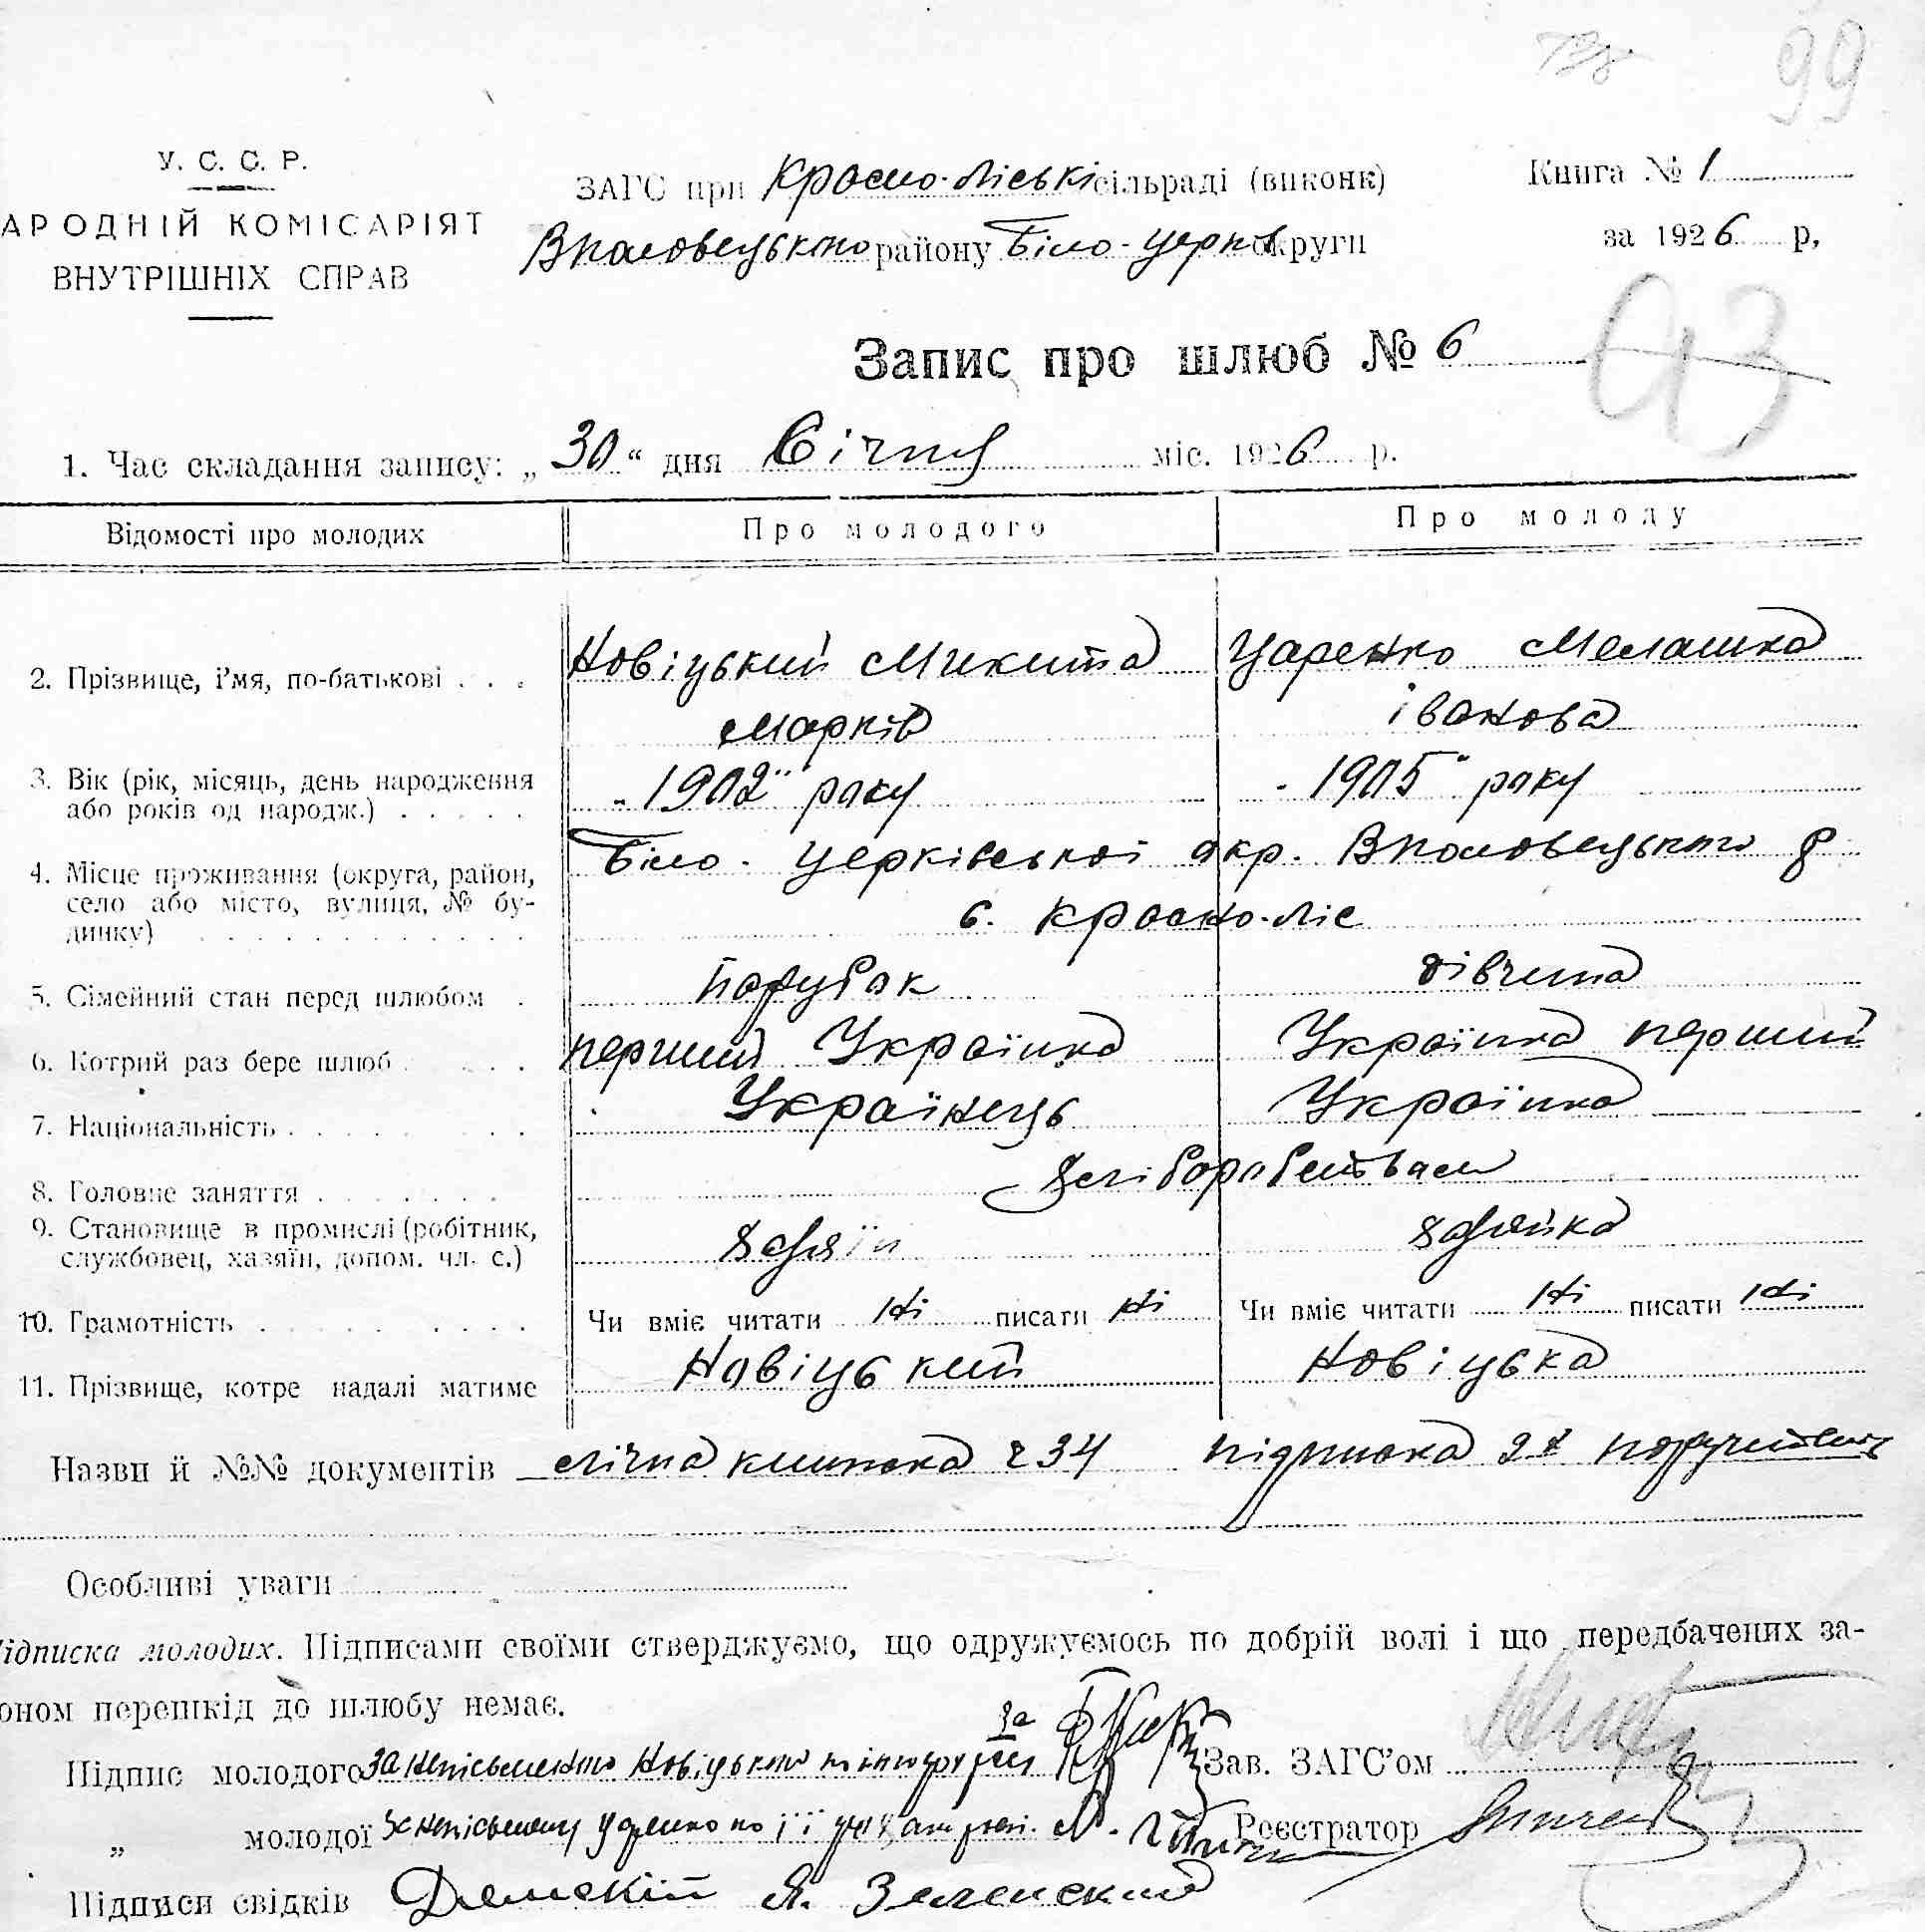 99
У. С. С. Р.
АРОДНІЙ КОМІСАРІЯТ
ВНУТРІШНІХ СПРАВ
ЗАГС при Красно-ліські сільраді (виконк)
Вполовецького району Біло-церків округи
Книга № 1
за 1926 р,
Запис про шлюб № 6
93
1. Час складання запису: „ 30 “ дня Січня міс. 1926 р.
Відомості про молодих
Про молодого
Про молоду
2. Прізвище, і'мя, по-батькові . . .
Новіцький Микита
Марків
Царенко Мелашка
Іванова
3. Вік (рік, місяць, день народження
або років од народж.) . . . . .
"1902" року
"1905" року
4. Місце проживання (округа, район,
село або місто, вулиця, № бу-
динку) . . . . . . . . . . . .
Біло-церківської окр. Вполовецького р
с. Красно-ліс
5. Сімейний стан перед шлюбом .
Парубок
дівчина
6. Котрий раз бере шлюб . . . . .
перший Українка
Українка перший
7. Національність . . . . . . .
Українець
Українка
8. Головне заняття . . . . . . .
хліборобством
9. Становище в промислі (робітник,
службовец, хазяїн, допом. чл. с.)
хазяїн
хазяйка
10. Грамотність . . . . . . . .
Чи вміє читати ні писати ні
Чи вміє читати ні писати ні
11. Прізвище, котре надалі матиме
Новіцький
Новіцька
Назви й №№ документів лічна книжка ч 34 підписка 2х поручителів
Особливі уваги
ідписка молодих. Підписами своїми стверджуємо, що одружуємось по добрій волі і що передбачених за-
оном перешкід до шлюбу немає.
Підпис молодого за неписьменого Новіцького
Зав. ЗАГС'ом
„ молодої за неписьмену Царенко по її
Реєстратор
Підписи свідків Демскій Я. Зеленский